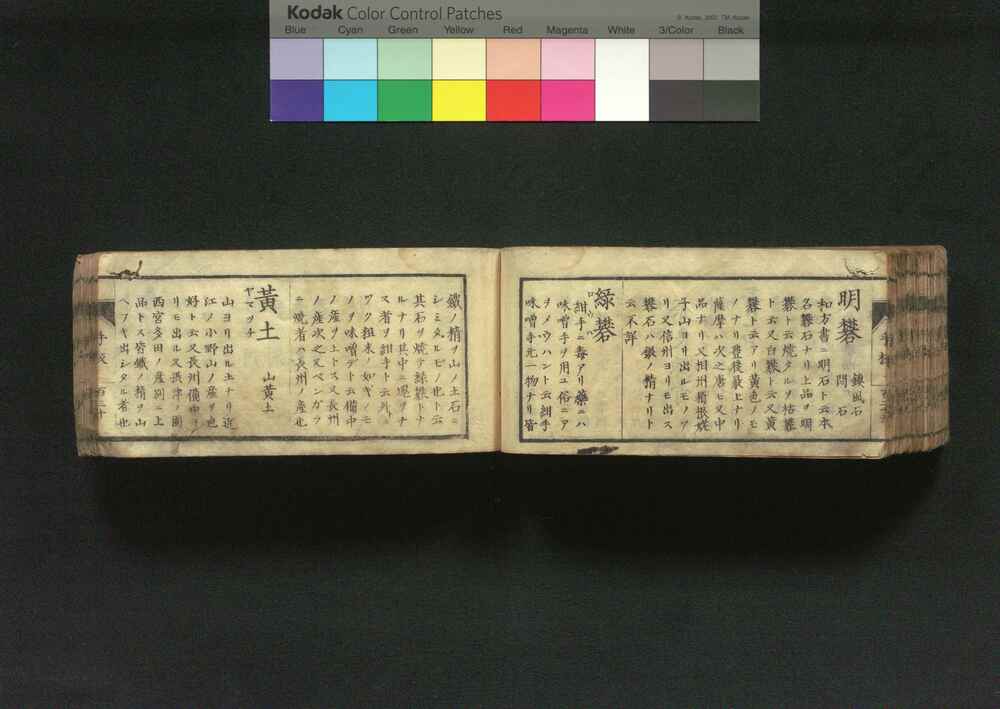 Kodak Color Control Patches
© Kodak, 2007 TM: Kodak
Blue Cyan Green Yellow Red Magenta White 3/Color Black
明礬
鍛風石
問石
和方書ニ明石ト云本
名礬石ナリ上品ヲ明
礬ト云焼タルヲ枯礬
ト云又白礬ト云又黄
礬ト云アリ黄色ノモ
ノナリ豊後最上ナリ
薩摩ハ次之唐モ又中
品ナリ又相州箱根
子山ヨリ出ルモノア
リ又信州ヨリモ出ス
礬石ハ銀ノ精ナリト
云不詳
綠礬
紺手ニ毒アリ藥ニハ
味噌手ヲ用ユ俗ニア
ヲメウハント云紺手
味噌手元一物ナリ皆
鐵ノ精ヲ山ノ土石ニ
シミタルモノ也ト云
其石ヲ焼テ緑礬トナ
ルナリ其中ニ
ス者ヲ紺手ト云外
ワク粗末ノ如キノモ
ノヲ味噌デト云備中
ノ産ヲ上トス又長州
ノ産次之又ベンガラ
ニ焼者ハ長州ノ産也
黃土
ヤマツチ
山黄土
山ヨリ出ル土ナリ近
江ノ小野山ノ産ヲ也
好ト云又長州備中ヨ
リモ出ル又摂津ノ國
西宮多田ノ産別ニ上
品トス皆鐵ノ精ヲ山
ヘフキ出シタル者也